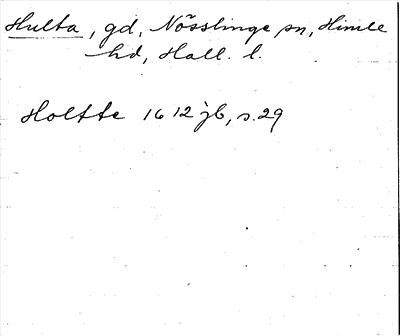 Hulta, gd, Nösslinge sn, Himle
hd, Hall. l.
Holtte 1612 jb, s. 29